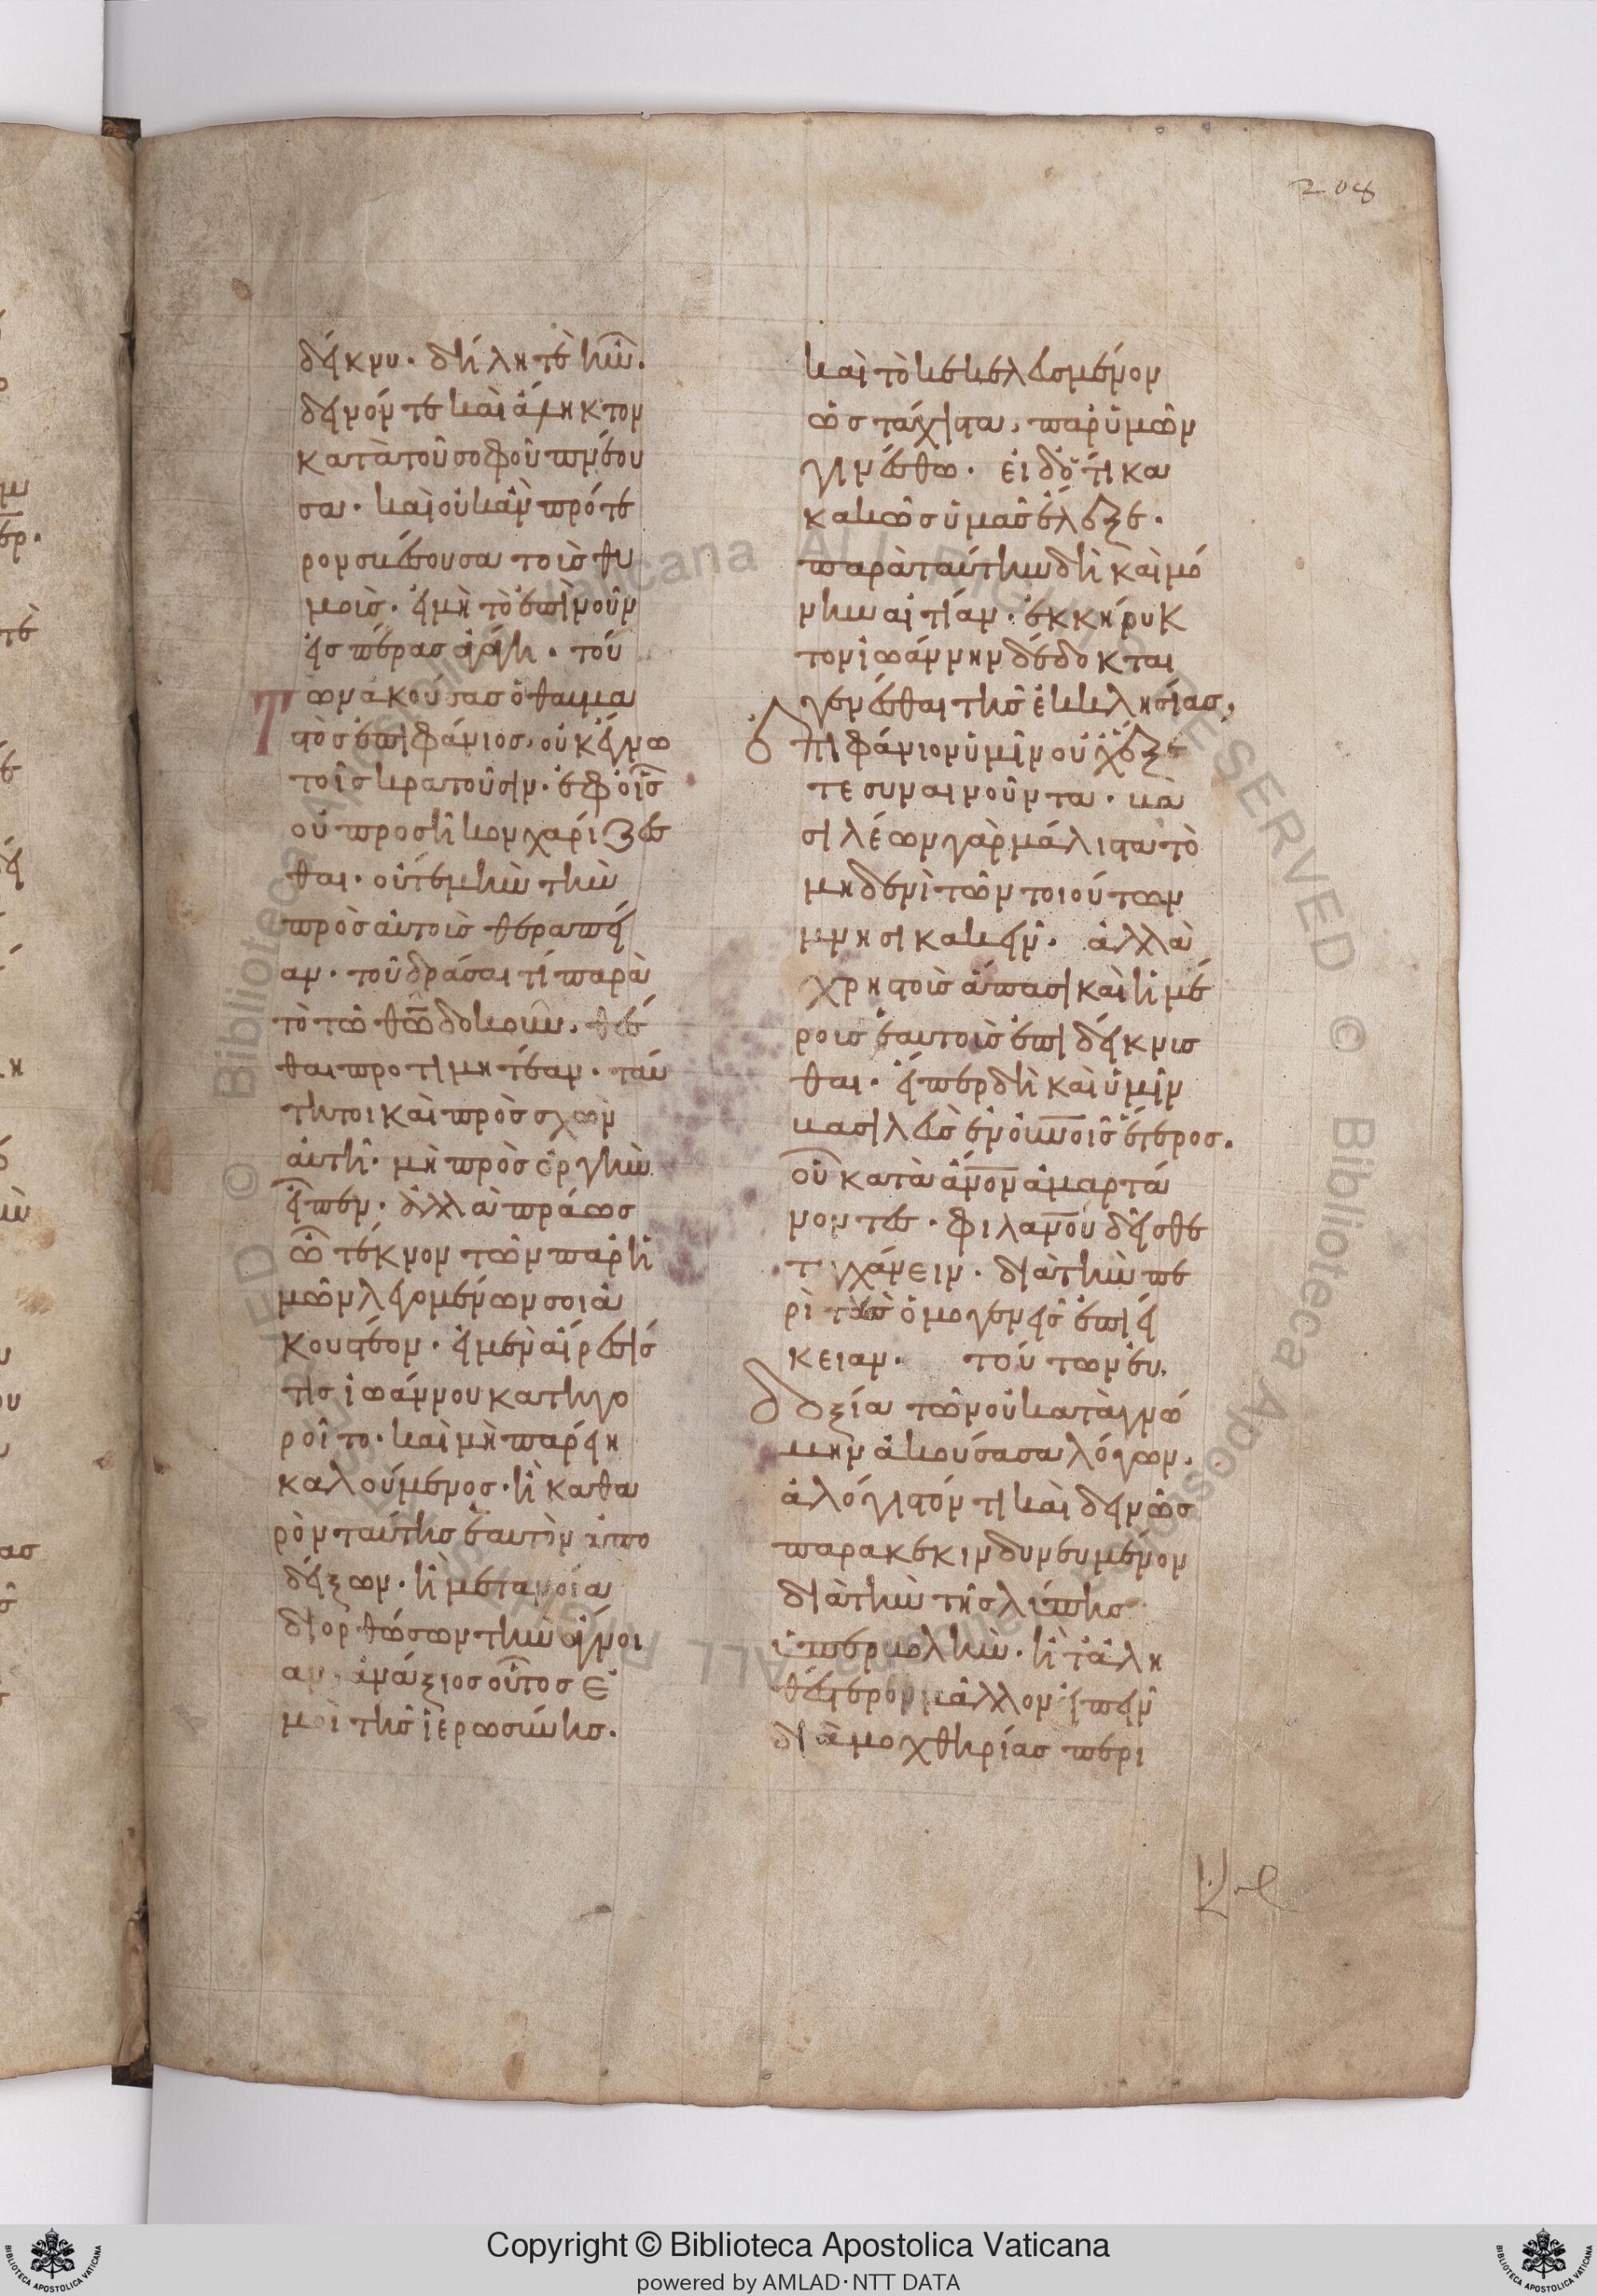 208
δείκνυ· δήλη τὲ ἦν·
δεινόν τε καὶ ἄμηκτον
κατὰ τοῦ σοφοῦ πνέου
σα· καὶ οὐκἂν πρότε
ρον σκέσουσα τοῖς θυ
μοῖς· εἰ μὴ τὸ ἐπίνουν
εἰς πέρας ἀγάγη· τού
των ἀκούσας ὁ θαυμα
στὸς ἐπιφάνιος, οὐκ εἰγνω
τοῖς κρατοῦσιν· ἐφ οἷς
οὐ προσῆκον χαρίζεσ
θαι· οὔτεμὴν τὴν
πρὸς αὐτοῖς θεραπεί
αν· τοῦ δράσαι τί παρὰ
τὸ τῶ θῶ δοκοῦν, θέσ
θαι προτιμητέαν· ταύ
τητοι καὶ πρὸς σχῶν
αὐτῆ· μὴ πρὸς ὀργὴν
εἶπεν· ἀλλὰ πράως
ὦ τέκνον τῶν παρ ἡ
μῶν λεγομένων σοι ἀ
κουστέον· εἰ μὲν αἱρέσεώσ
τις ἰωάννου κατηγο
ροῖτο· καὶ μὴ παρείη
καλούμενος· ἢ καθα
ρὸν ταύτης ἑαυτὸν ἀπο
δείξων· ἢ μετανοία
διορθώσων τὴν ἄγνοι
αν, ἀνάξιος οὗτος ἐ
μοὶ τῆς ἱερωσύνης·
καὶ τὸ κεκελευσμένον
ὡς τάχιστα, παρ ὑμῶν
γινέσθω· εἰ δ ὅτι κα
κῶς ὑμᾶς ἔλεξε·
παρὰ ταύτην δὴ καὶ μό
νην αἰτίαν· ἐκκήρυκ
τον ἰωάννην δέδοκται
γενέσθαι τῆς ἐκκλησίας,
ἐπιφάνιον ὑμῖν οὐχ ἕξε
τε συναινοῦντα· βα
σιλέων γὰρ μάλιστα τὸ
μηδενὶ τῶν τοιούτων
μνησικακεῖν· ἀλλὰ
χρηστοῖς ἅπασι καὶ ἡμέ
ροις ἑαυτοῖς ἐπιδείκνυσ
θαι· εἴπερ δὴ καὶ ὑμῖν
βασιλεὺς ἐν οὐνοῖς ἕτερος·
οὗ κατὰ ἄνον ἁμαρτά
νοντες· φιλανου δεῖσθε
τυγχάνειν· διὰ τὴν πε
ρὶ τοὺς ὁμογενεῖς ἐπιεί
κειαν· τούτων εὐ,
δοξία τῶν οὐ κατὰ γνώ
μην ἀκούσασα λόγων,
ἀλόγιστόν τι καὶ δεινῶς
παρακεκινδυνευμένον
διὰ τὴν τῆς λύπης
ὑπερβολὴν· ἢ τ ἀλη
θέστερον μᾶλλον εἰπεῖν
διὰ μοχθηρίας περι
Copyright © Biblioteca Apostolica Vaticana
powered by AMLAD·NTT DATA